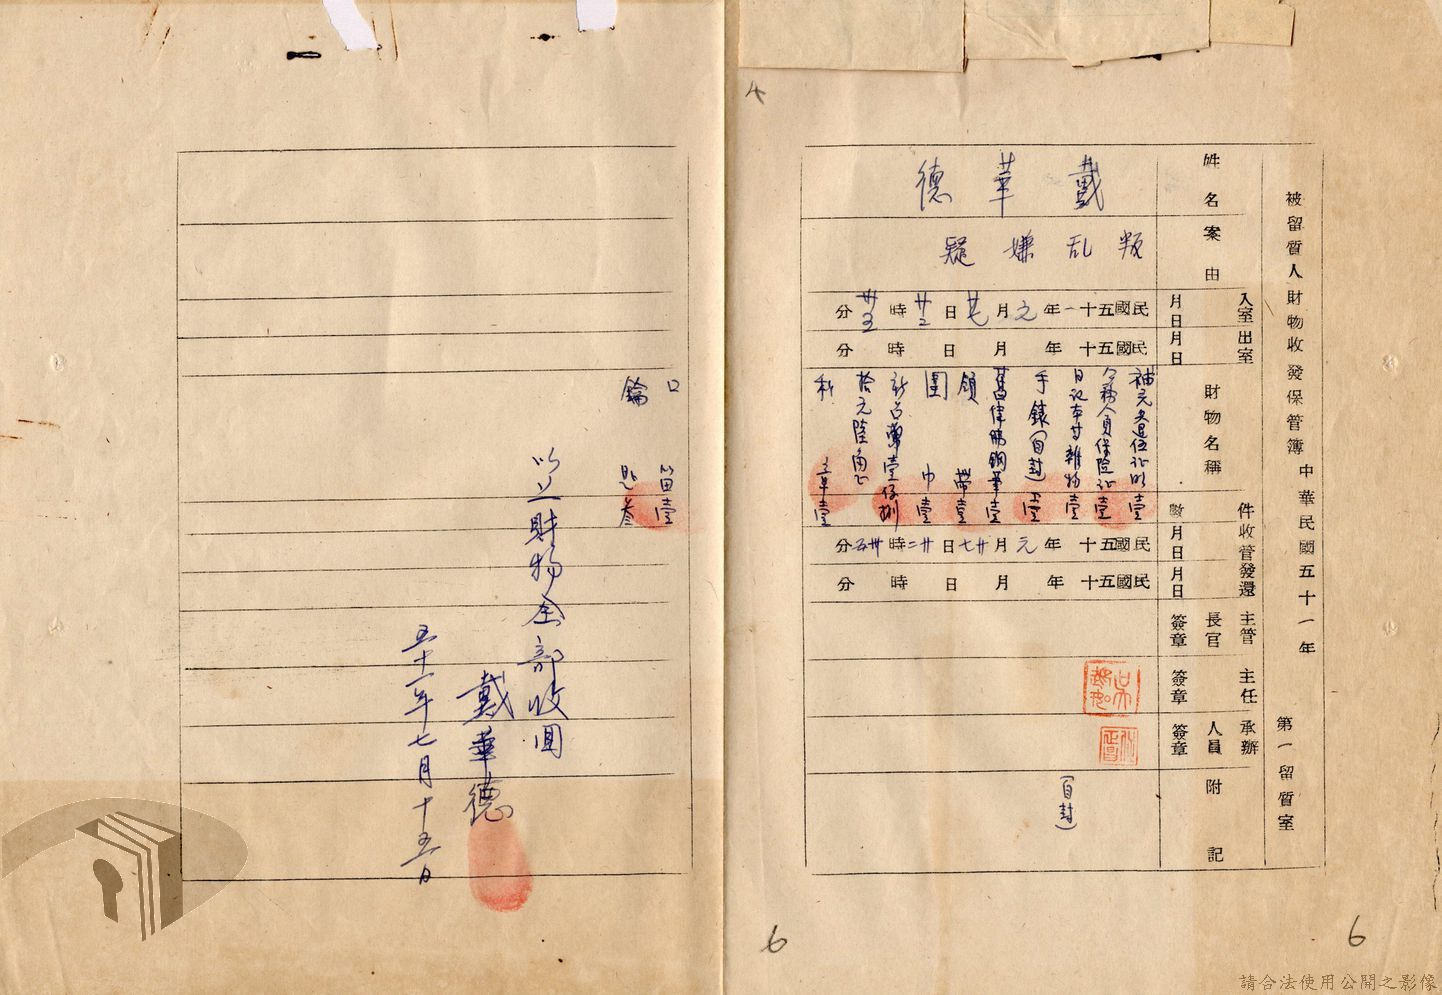 被留質人財物收發保管簿 中華民國五十一年
第一留質室
姓名
戴華德
案由
叛乱嫌疑
入室月日
民國五十一年元月廿七日廿二時廿五分
出室月日
民國五十年月日時分
財物名稱
件數
補充兵退伍証明壹
公務人員保險証壹
日記本等雜物壹
手錶(自封)壹
舊偉聯鋼筆壹
領帶壹
圍巾壹
新台幣壹仟捌
拾元陸角正
私章壹
收管月日
民國五十年元月廿七日廿二時廿五分
發還月日
民國五十年月日時分
主管長官簽章
主任簽章
承辦人員簽章
附記
(自封)
口笛壹
鑰匙叁
以上財物全部收回
戴華德
五十一年七月十五日
4
6
6
請合法使用公開之影像